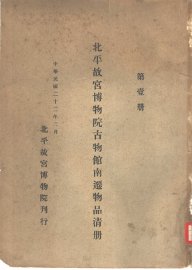 第壹册
北平故宮博物院古物館南遷物品清册
中華民國二十二年二月
北平故宮博物院刊行